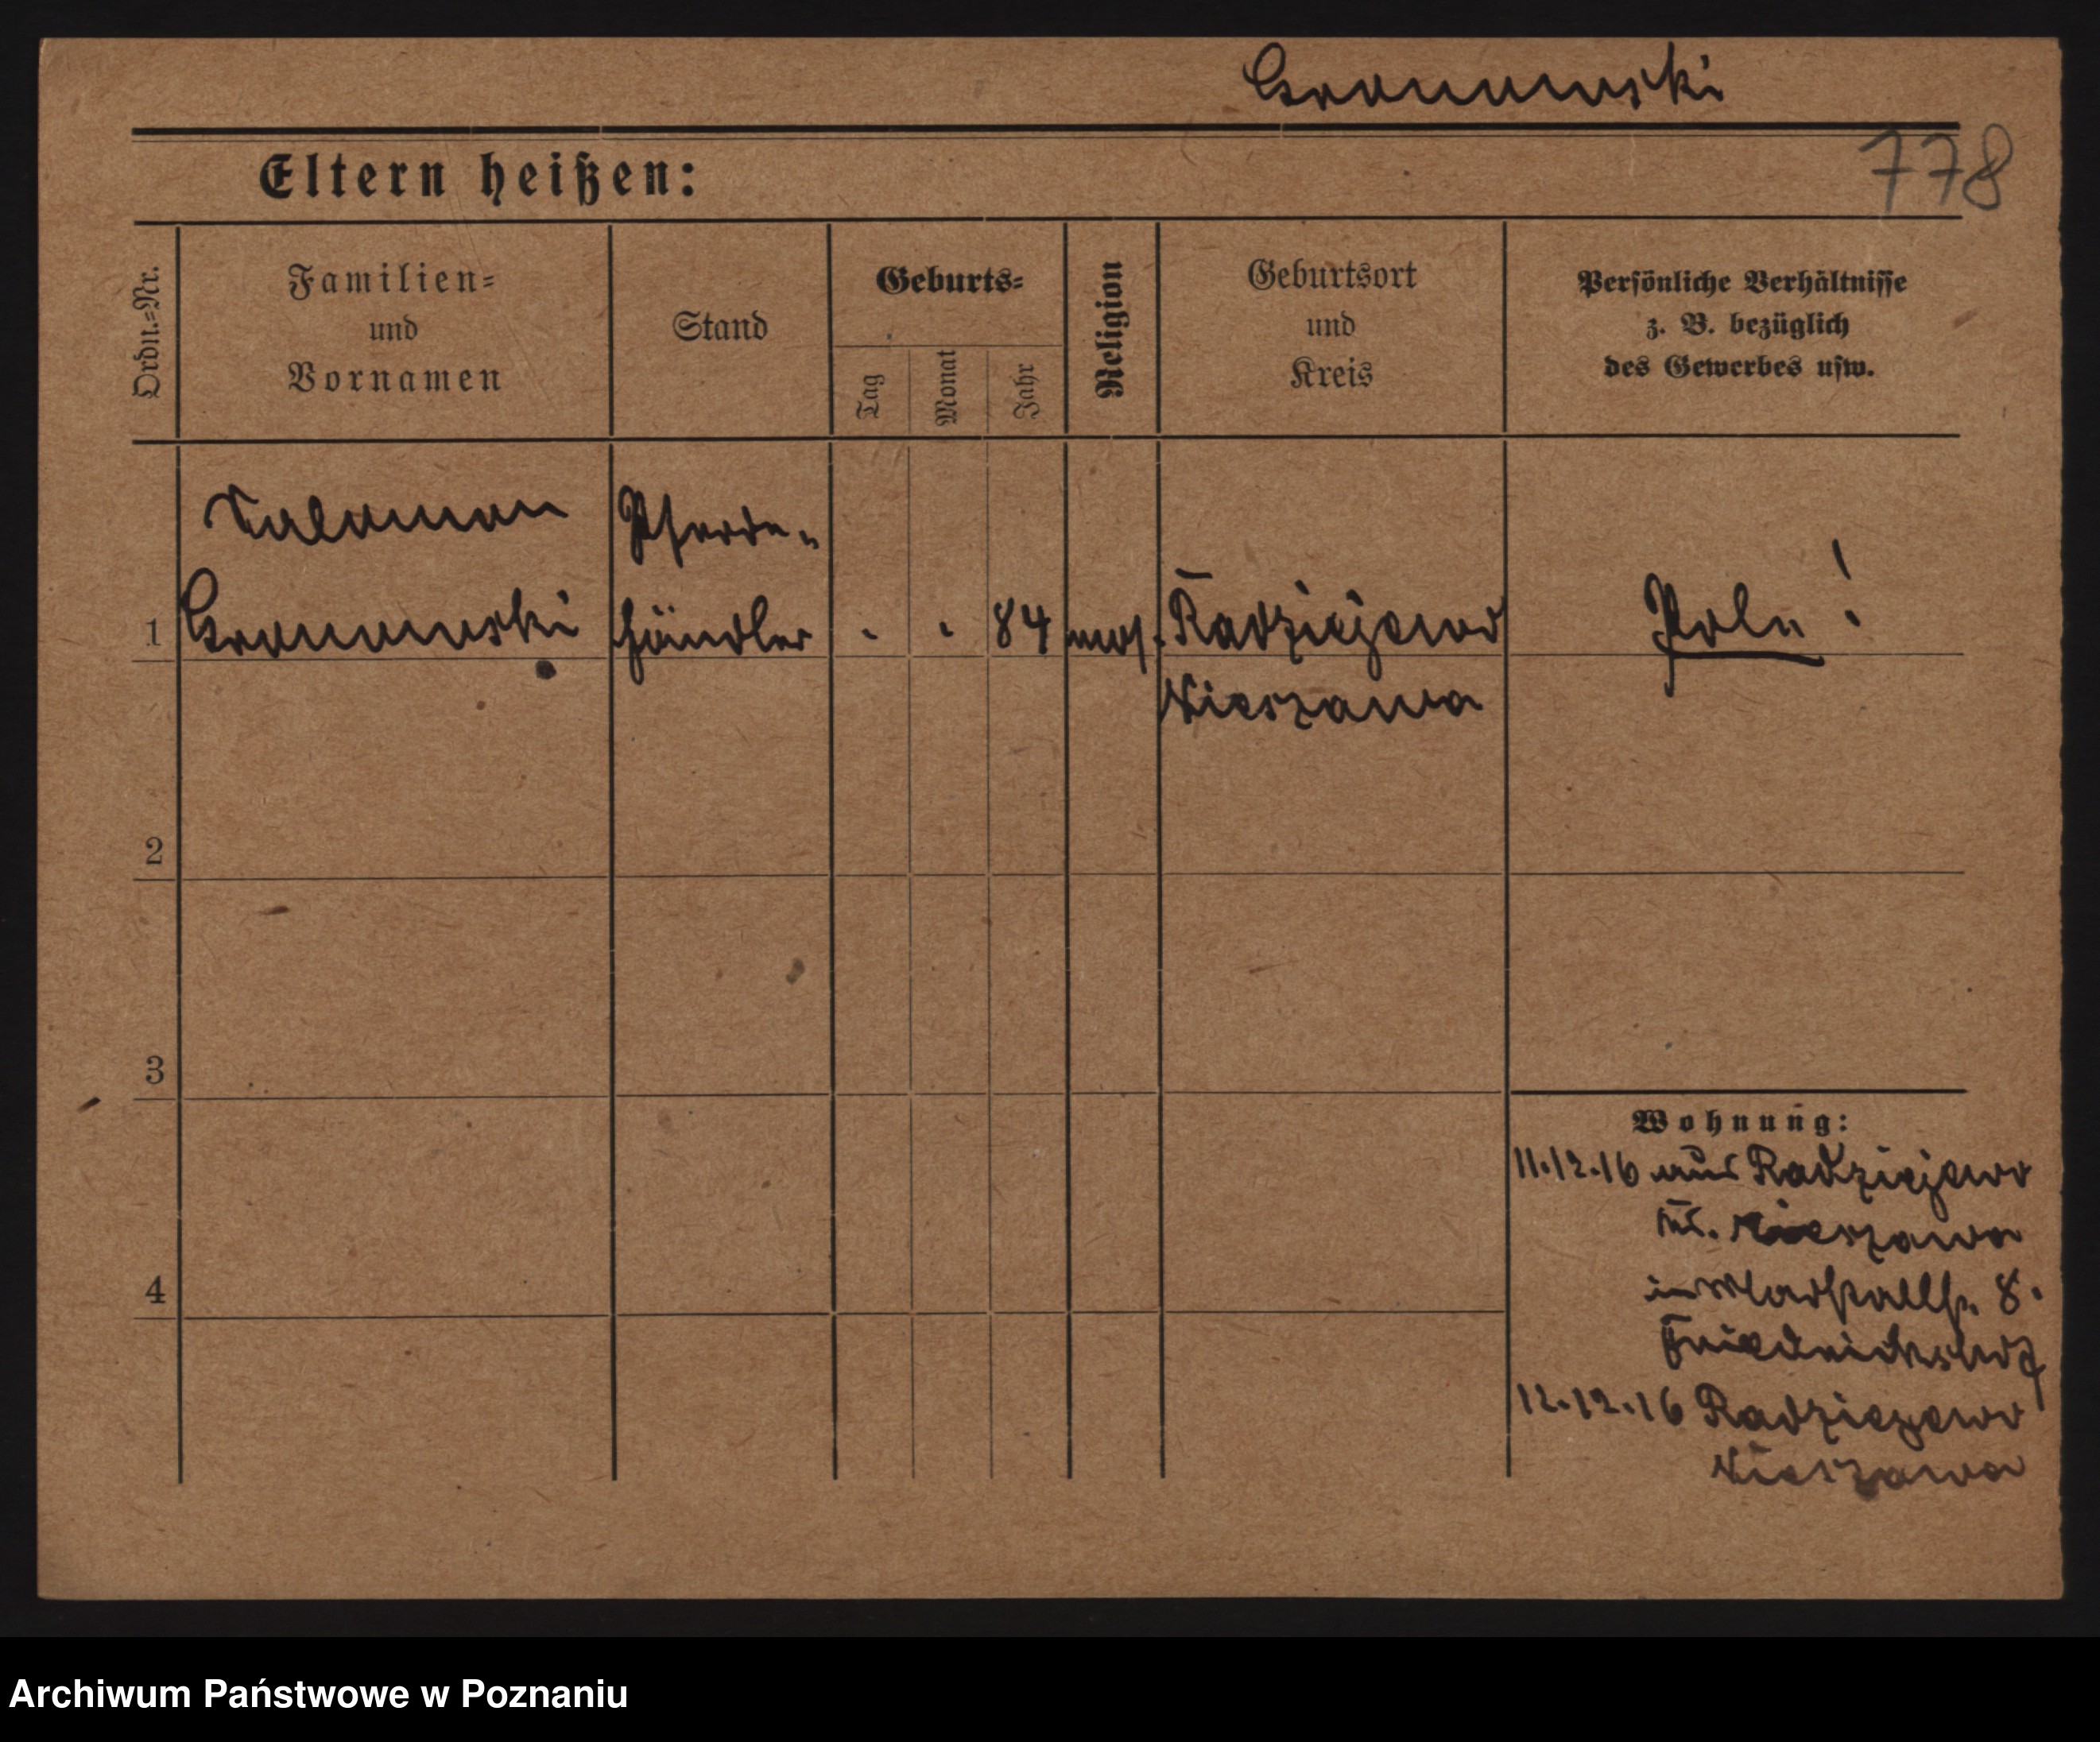 Gronowski
Eltern heißen:
778
Ordn.=Nr.
Familien=
und
Vornamen
Stand
Geburts=
Tag
Monat
Jahr
Religion
Geburtsort
und
Kreis
Persönliche Verhältnisse
z. B. bezüglich
des Gewerbes usw.
Salomon
Pferde-
1 Gronowski händler 84 mos. Radziejewo
Nieszawa
Pole!
2
3
4
Wohnung:
11.12.16 aus Radziejewo
Nieszawa
in Marstallstr. 8.
Friedrichshof
12.12.16 Radziejewo
Nieszawa
Archiwum Państwowe w Poznaniu